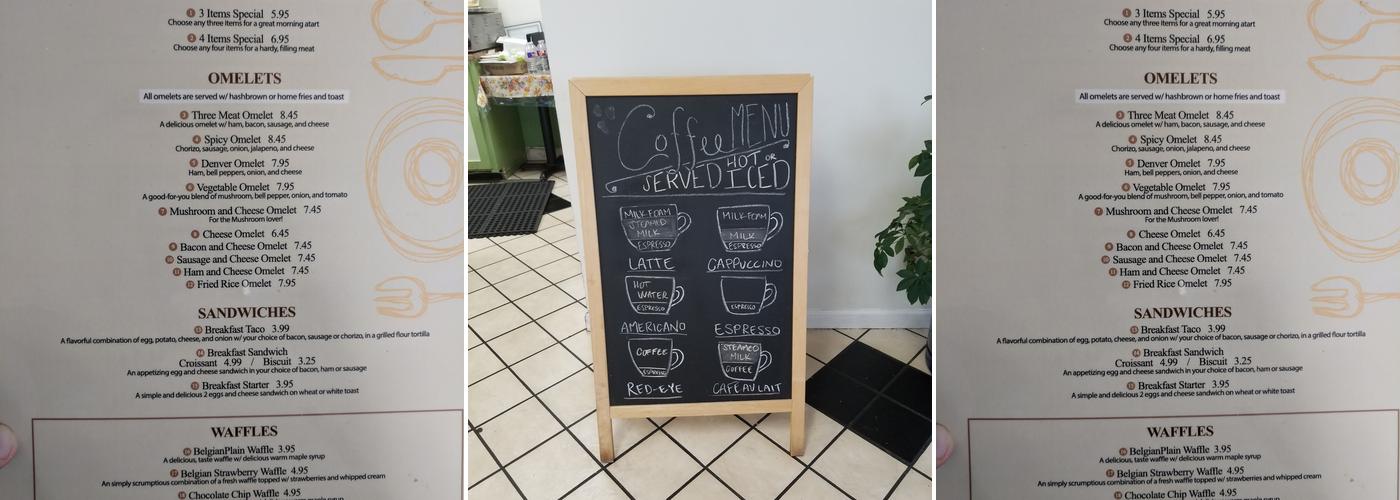 1 3 Items Special 5.95
Choose any three items for a great morning atart
2 4 Items Special 6.95
Choose any four items for a hardy, filling meat
OMELETS
All omelets are served w/ hashbrown or home fries and toast
3 Three Meat Omelet 8.45
A delicious omelet w/ ham, bacon, sausage, and cheese
4 Spicy Omelet 8.45
Chorizo, sausage, onion, jalapeno, and cheese
5 Denver Omelet 7.95
Ham, bell peppers, onion, and cheese
6 Vegetable Omelet 7.95
A good-for-you blend of mushroom, bell pepper, onion, and tomato
7 Mushroom and Cheese Omelet 7.45
For the Mushroom lover!
8 Cheese Omelet 6.45
9 Bacon and Cheese Omelet 7.45
10 Sausage and Cheese Omelet 7.45
11 Ham and Cheese Omelet 7.45
12 Fried Rice Omelet 7.95
SANDWICHES
13 Breakfast Taco 3.99
A flavorful combination of egg, potato, cheese, and onion w/ your choice of bacon, sausage or chorizo, in a grilled flour tortilla
14 Breakfast Sandwich
Croissant 4.99 / Biscuit 3.25
An appetizing egg and cheese sandwich in your choice of bacon, ham or sausage
15 Breakfast Starter 3.95
A simple and delicious 2 eggs and cheese sandwich on wheat or white toast
WAFFLES
16 BelgianPlain Waffle 3.95
A delicious, taste waffle w/ delicious warm maple syrup
17 Belgian Strawberry Waffle 4.95
An simply scrumptious combination of a fresh waffle topped w/ strawberries and whipped cream
18 Chocolate Chip Waffle 4.95
Coffee MENU
SERVED HOT OR ICED
MILK FOAM
STEAMED
MILK
ESPRESSO
LATTE
MILK FOAM
MILK
ESPRESSO
CAPPUCCINO
HOT
WATER
ESPRESSO
AMERICANO
ESPRESSO
ESPRESSO
COFFEE
ESPRESSO
RED-EYE
STEAMED
MILK
COFFEE
CAFE AU LAIT
1 3 Items Special 5.95
Choose any three items for a great morning atart
2 4 Items Special 6.95
Choose any four items for a hardy, filling meat
OMELETS
All omelets are served w/ hashbrown or home fries and toast
3 Three Meat Omelet 8.45
A delicious omelet w/ ham, bacon, sausage, and cheese
4 Spicy Omelet 8.45
Chorizo, sausage, onion, jalapeno, and cheese
5 Denver Omelet 7.95
Ham, bell peppers, onion, and cheese
6 Vegetable Omelet 7.95
A good-for-you blend of mushroom, bell pepper, onion, and tomato
7 Mushroom and Cheese Omelet 7.45
For the Mushroom lover!
8 Cheese Omelet 6.45
9 Bacon and Cheese Omelet 7.45
10 Sausage and Cheese Omelet 7.45
11 Ham and Cheese Omelet 7.45
12 Fried Rice Omelet 7.95
SANDWICHES
13 Breakfast Taco 3.99
A flavorful combination of egg, potato, cheese, and onion w/ your choice of bacon, sausage or chorizo, in a grilled flour tortilla
14 Breakfast Sandwich
Croissant 4.99 / Biscuit 3.25
An appetizing egg and cheese sandwich in your choice of bacon, ham or sausage
15 Breakfast Starter 3.95
A simple and delicious 2 eggs and cheese sandwich on wheat or white toast
WAFFLES
16 BelgianPlain Waffle 3.95
A delicious, taste waffle w/ delicious warm maple syrup
17 Belgian Strawberry Waffle 4.95
An simply scrumptious combination of a fresh waffle topped w/ strawberries and whipped cream
18 Chocolate Chip Waffle 4.95